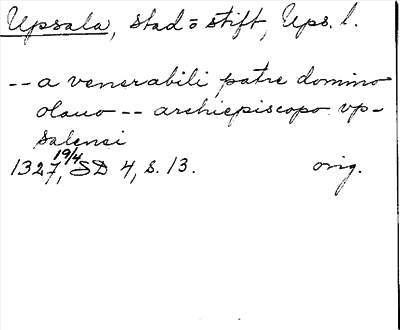 Upsala, stad o stift, Ups. l.
-- a venerabili patre domino
olauo -- archiepiscopo vp-
salensi
1327, 19/4 SD 4, s. 13. orig.